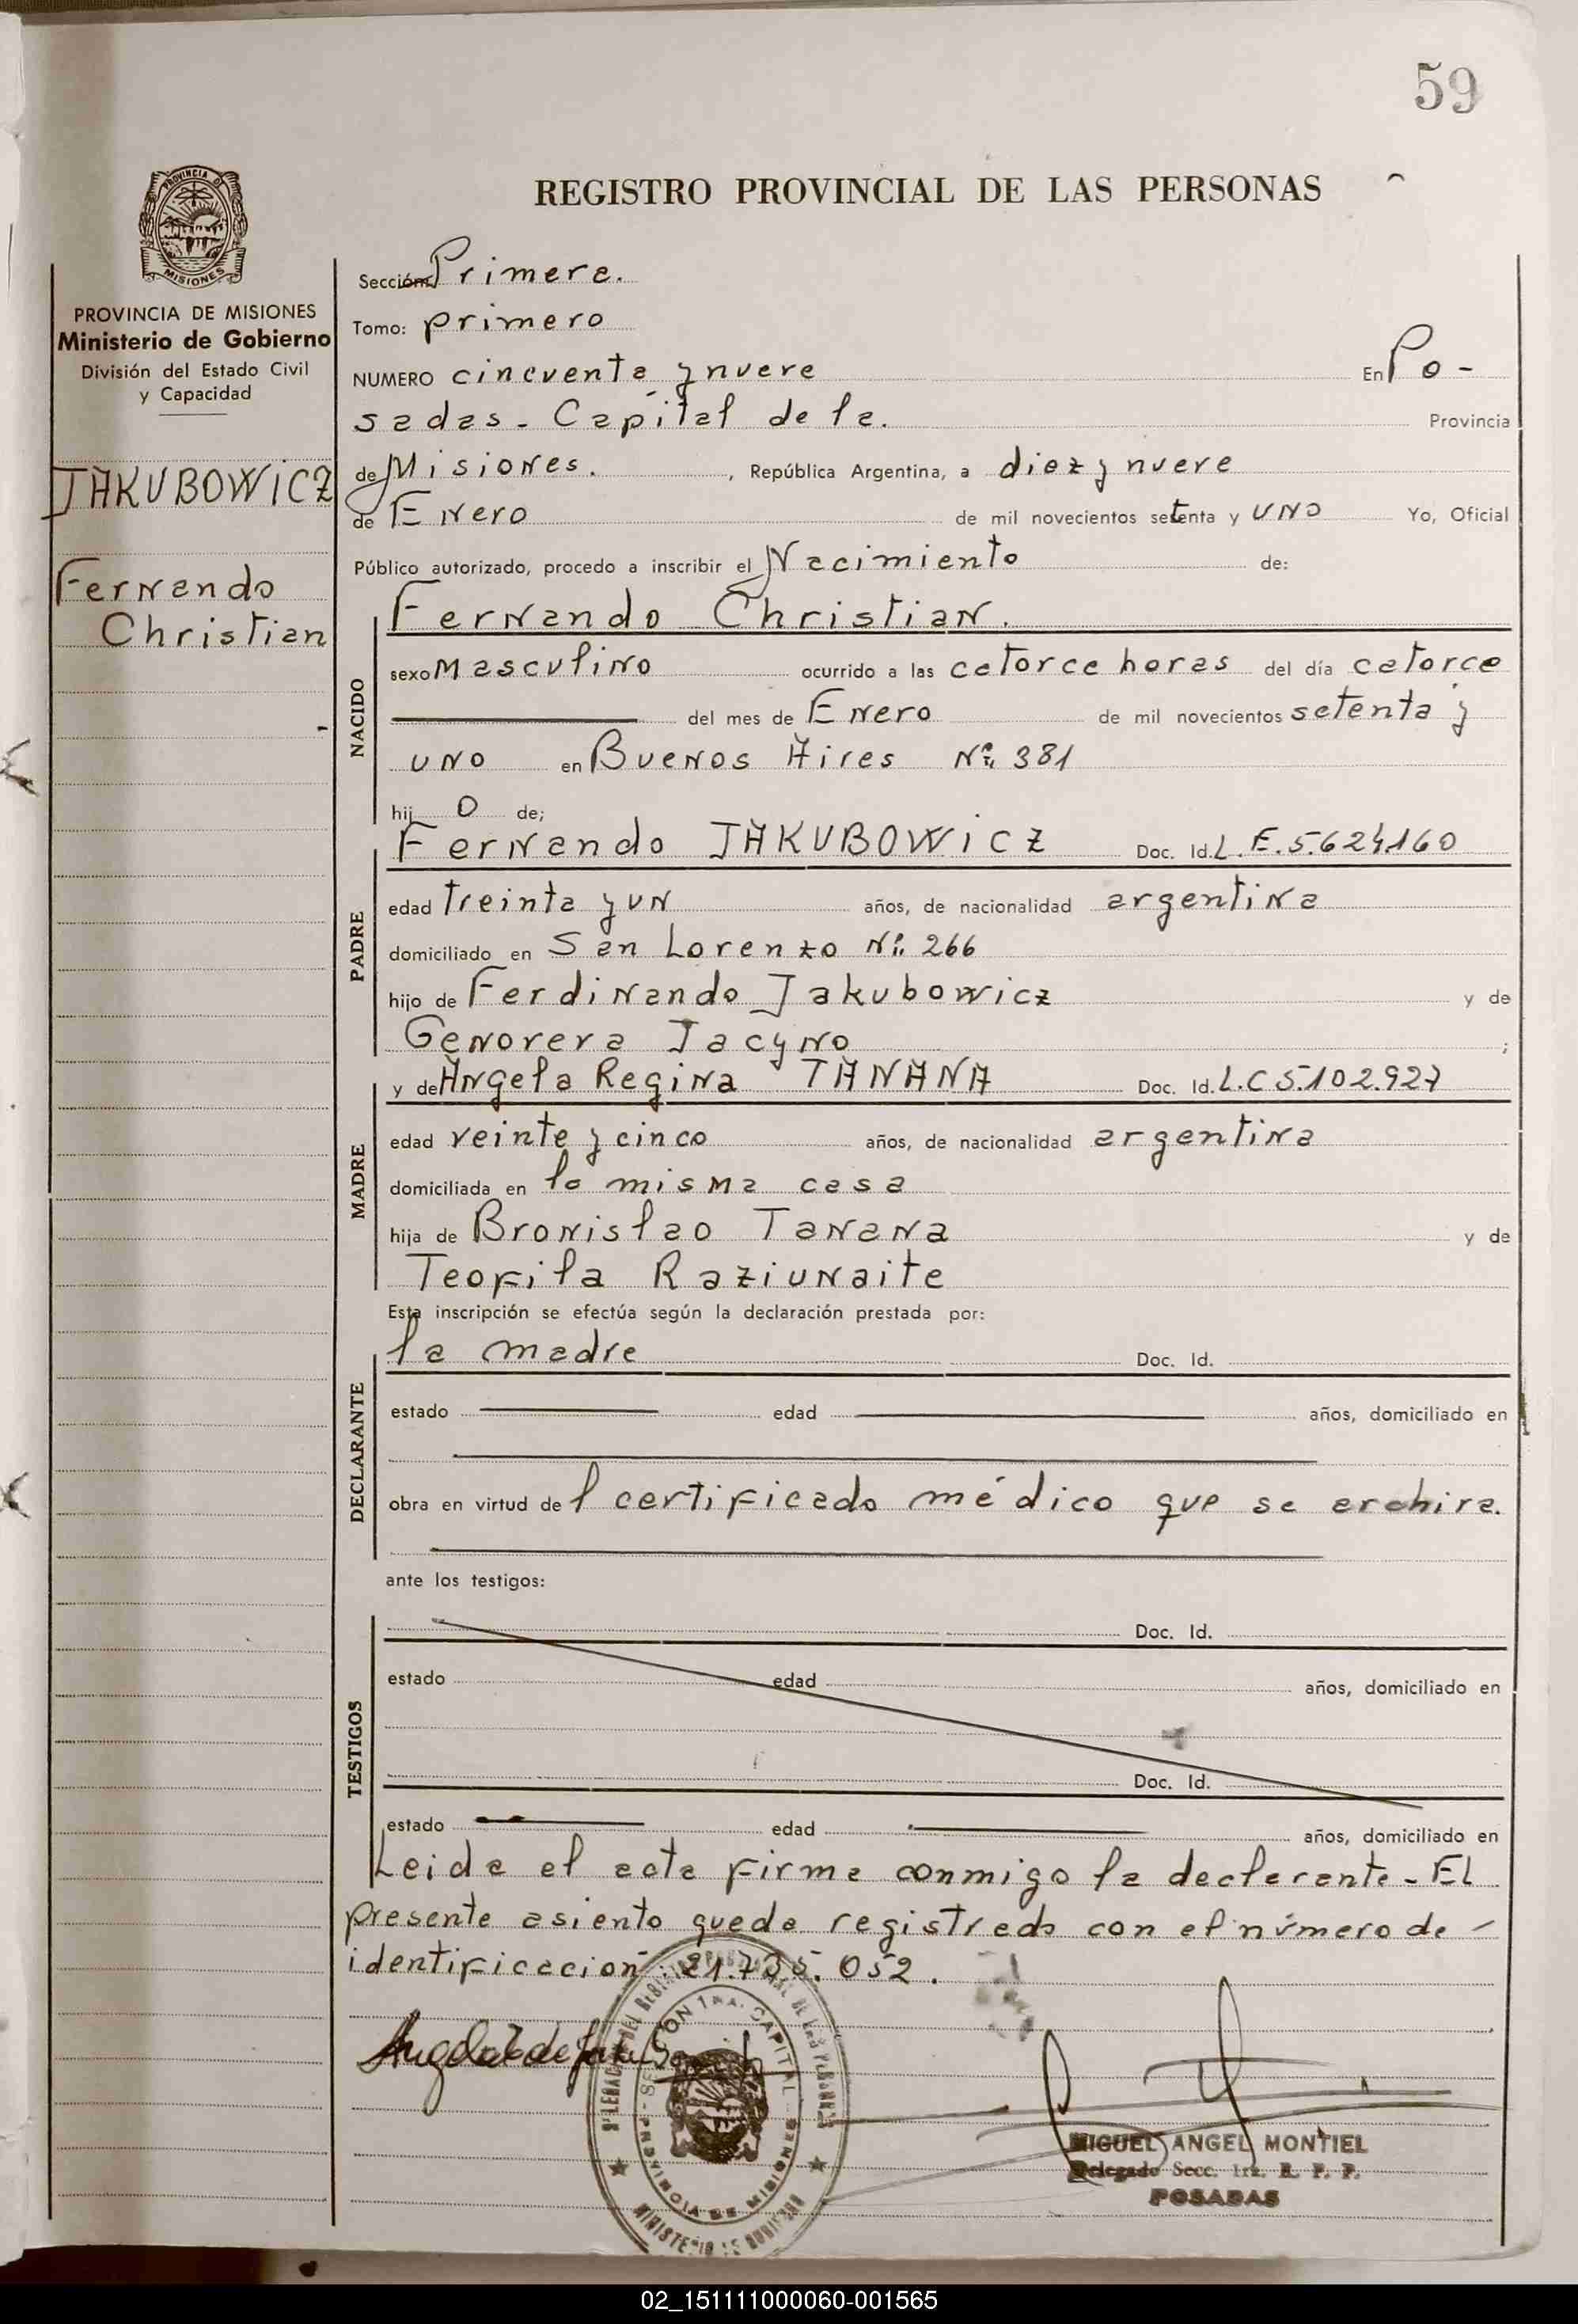 59
REGISTRO PROVINCIAL DE LAS PERSONAS
PROVINCIA DE MISIONES
PROVINCIA DE MISIONES
Ministerio de Gobierno
División del Estado Civil
y Capacidad
JAKUBOWICZ
Fernando
Christian
Sección: Primera.
Tomo: primero
NUMERO cincuenta y nueve En Po-
sadas - Capital de la. Provincia
de Misiones. , República Argentina, a diez y nueve
de Enero de mil novecientos setenta y uno Yo, Oficial
Público autorizado, procedo a inscribir el Nacimiento de:
NACIDO
Fernando Christian.
sexo Masculino ocurrido a las catorce horas del día catorce
del mes de Enero de mil novecientos setenta y
uno en Buenos Aires Nº 381
hij o de;
PADRE
Fernando JAKUBOWICZ Doc. Id. L.E. 5.624.160
edad treinta y un años, de nacionalidad argentina
domiciliado en San Lorenzo Nº 266
hijo de Ferdinando Jakubowicz y de
Genovera Jacyno ;
MADRE
y de Angela Regina TANANA Doc. Id. L.C 5.102.927
edad veinte y cinco años, de nacionalidad argentina
domiciliada en la misma casa
hija de Bronislao Tanana y de
Teofila Raziunaite
Esta inscripción se efectúa según la declaración prestada por:
DECLARANTE
la madre Doc. Id.
estado edad años, domiciliado en
obra en virtud de l certificado médico que se archiva.
ante los testigos:
TESTIGOS
Doc. Id.
estado edad años, domiciliado en
Doc. Id.
estado edad años, domiciliado en
Leida el acta firma conmigo la declarante - El
presente asiento queda registrado con el número de
identificacion: 21.735.052.
SECCION 1RA. CAPITAL
PROVINCIA DE MISIONES
MIGUEL ANGEL MONTIEL
Delegado Secc. 1ra. R. P. P.
POSADAS
02_151111000060-001565